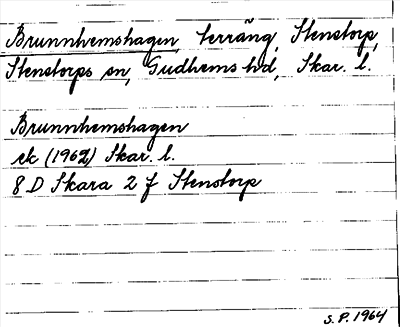 Brunnhemshagen, terräng, Stenstorp,
Stenstorps sn, Gudhems hd, Skar. l.
Brunnhemshagen
ek (1962) Skar. l.
8 D Skara 2 f Stenstorp
S. P. 1964